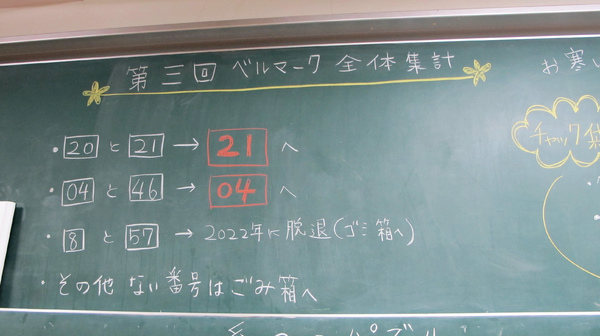 第三回 ベルマーク 全体集計
・20 と 21 → 21 へ
・04 と 46 → 04 へ
・8 と 57 → 2022年に脱退(ゴミ箱へ)
・その他 ない番号はごみ箱へ
お寒い
チャック袋